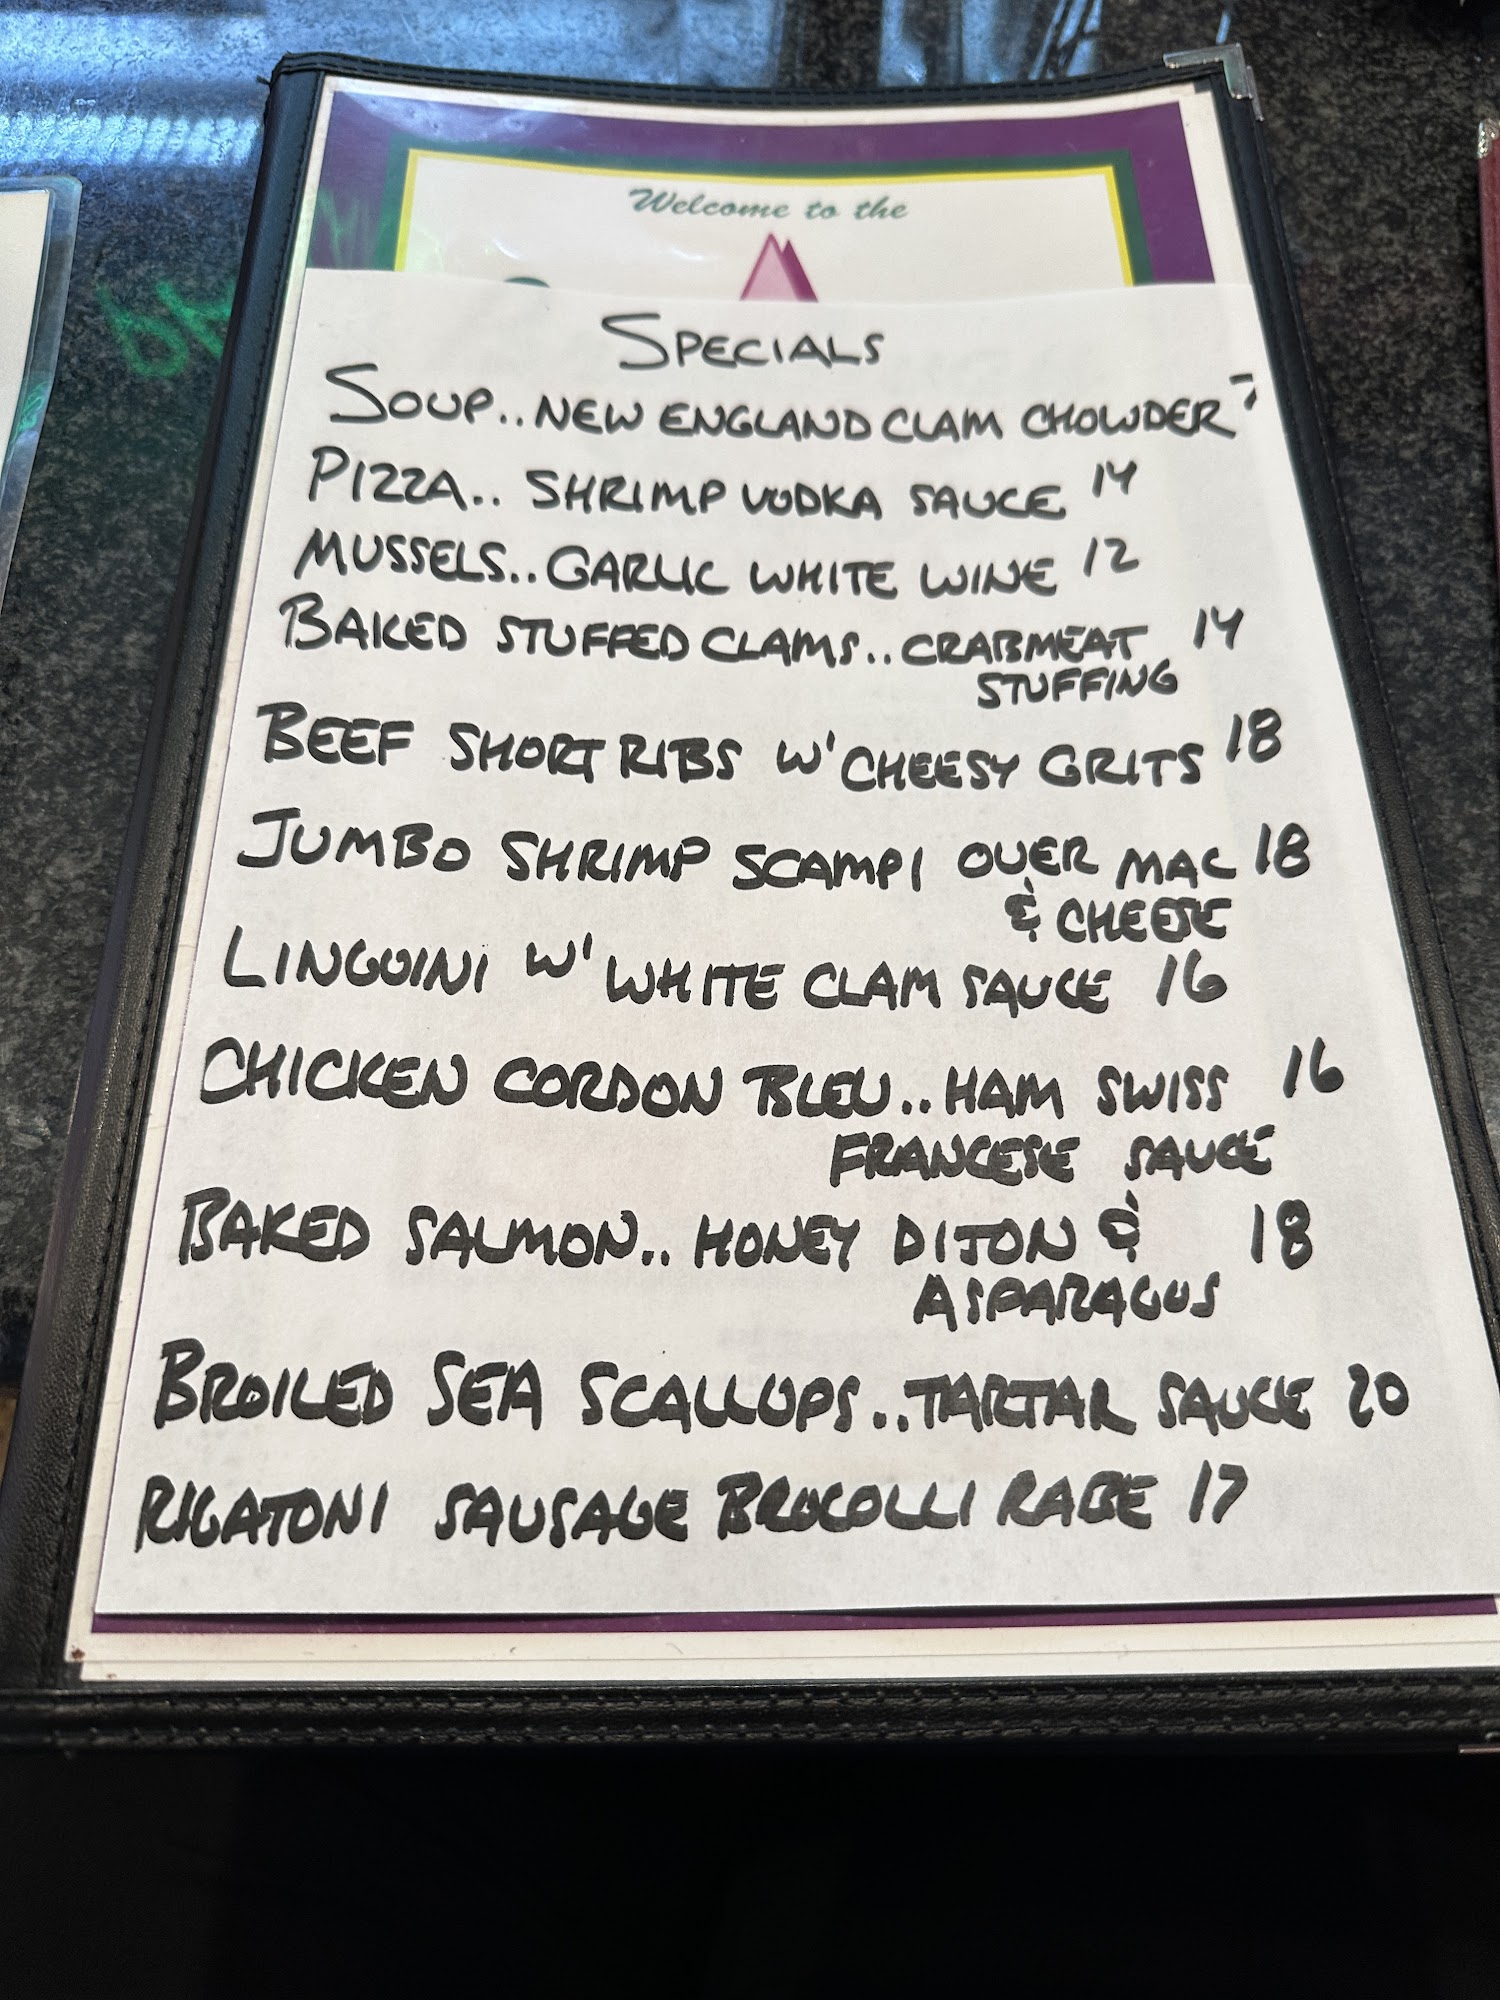 Welcome to the
SPECIALS
SOUP..NEW ENGLAND CLAM CHOWDER 7
PIZZA.. SHRIMP VODKA SAUCE 14
MUSSELS..GARLIC WHITE WINE 12
BAKED STUFFED CLAMS..CRABMEAT 14
STUFFING
BEEF SHORT RIBS W' CHEESY GRITS 18
JUMBO SHRIMP SCAMPI OVER MAC 18
& CHEESE
LINGUINI W' WHITE CLAM SAUCE 16
CHICKEN CORDON BLEU..HAM SWISS 16
FRANCESE SAUCE
BAKED SALMON.. HONEY DIJON & 18
ASPARAGUS
BROILED SEA SCALLOPS..TARTAR SAUCE 20
RIGATONI SAUSAGE BROCOLLI RABE 17